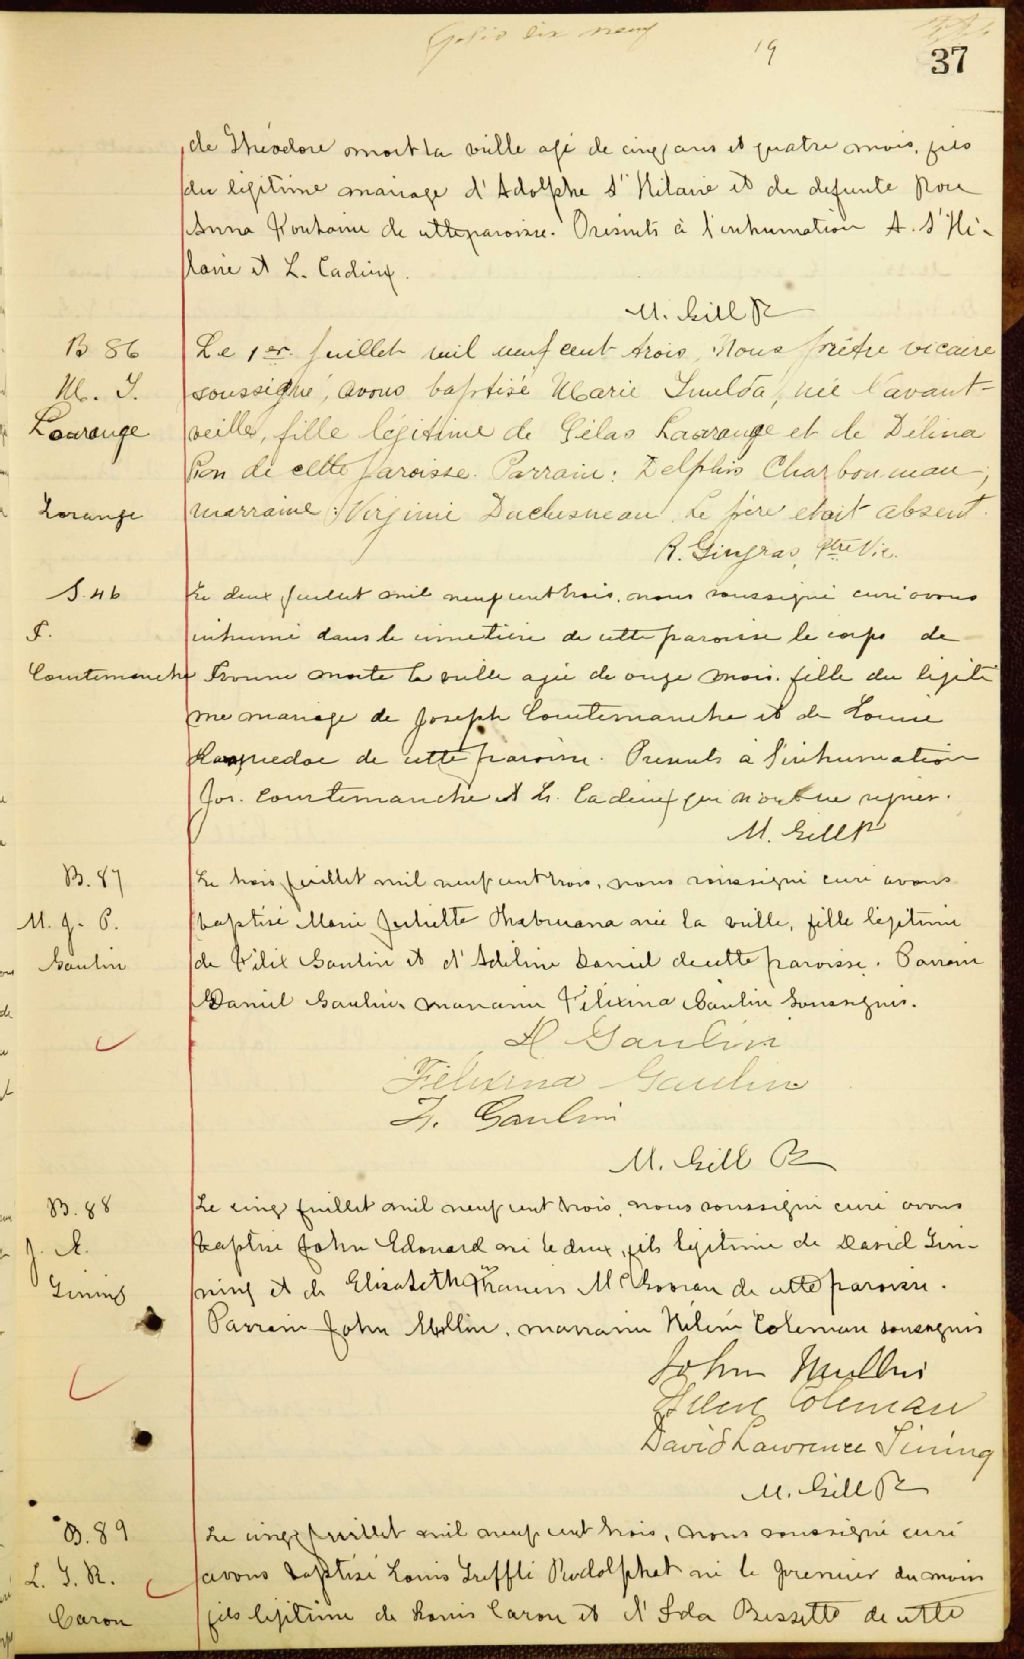 Folio dix neuf
19
37
de Théodore mort la veille agé de cinq ans et quatre mois, fils
du légitime mariage d'Adolphe St Hilaire et de defunte Rose
Anna Fontaine de cette paroisse. Présents à l'inhumation A. St Hi-
laire et L. Cadieux.
M. Gill Ptr
B 86
M. I.
Laurange
Lorange
Le 1er Juillet mil neuf cent trois, Nous prêtre vicaire
soussigné, avons baptisé Marie Imelda, née l'avant-
veille, fille légitime de Gélas Laurange et de Délina
Pion de cette paroisse. Parrain: Delphis Charbonneau;
marraine: Virginie Duchesneau. Le père était absent.
R. Gingras, Ptre Vic.
S. 46
F.
Courtemanche
Le deux Juillet mil neuf cent trois, nous soussigné curé avons
inhumé dans le cimetière de cette paroisse le corps de
morte la veille agée de onze mois, fille du légiti
me mariage de Joseph Courtemanche et de Louise
de cette paroisse. Présents à l'inhumation
Jos. Courtemanche et L. Cadieux qui n'ont su signer.
M. Gill Ptr
B. 87
M. J. P.
Gaulin
Le trois Juillet mil neuf cent trois, nous soussigné curé avons
baptisé Marie Juliette née la veille, fille légitime
de Félix Gaulin et d'Adéline Daniel de cette paroisse. Parrain
Daniel Gaulin, marraine Félixina Gaulin soussignés.
D Gaulin
Félixina Gaulin
F. Gaulin
M. Gill Ptr
B. 88
J. E.
Gining
Le cinq Juillet mil neuf cent trois, nous soussigné curé avons
baptisé John Edouard né le deux, fils légitime de David Gin-
ning et de Elisabeth Frances McGowan de cette paroisse.
Parrain John Mullin, marraine Hélène Coleman soussignés
John Mullins
Helene Coleman
David Lawrence Gining
M. Gill Ptr
B. 89
L. T. R.
Caron
Le cinq Juillet mil neuf cent trois, nous soussigné curé
avons baptisé Louis Treffli Rodolphat né le premier du mois
fils légitime de Louis Caron et d'Ida Bessette de cette